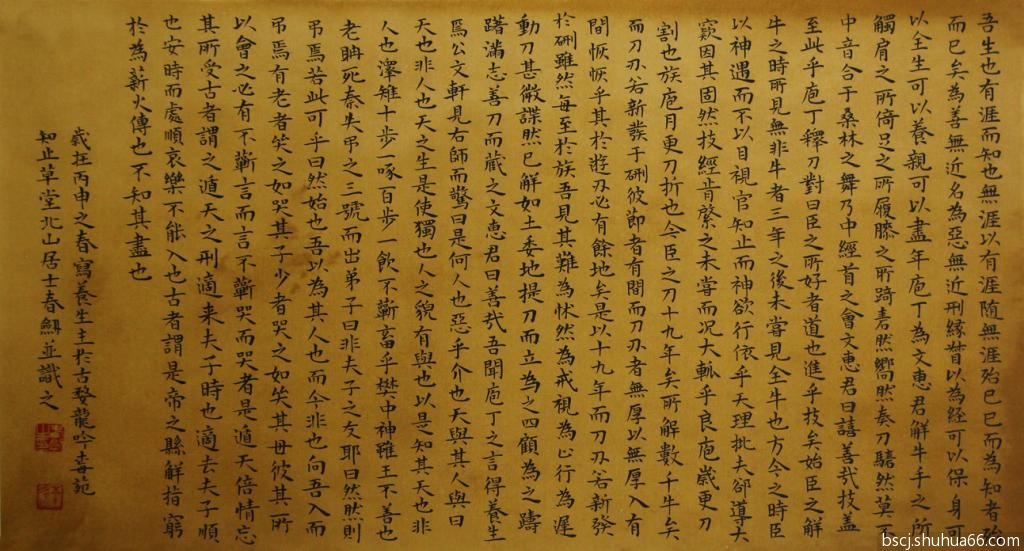 吾生也有涯而知也無涯以有涯随無涯殆已已而為知者殆
而已矣為善無近名為惡無近刑緣督以為经可以保身可
以全生可以養親可以盡年庖丁為文惠君解牛手之所
觸肩之所倚足之所履膝之所踦砉然嚮然奏刀騞然莫不
中音合于桑林之舞乃中經首之會文惠君曰譆善哉技蓋
至此乎庖丁釋刀對曰臣之所好者道也進乎技矣始臣之解
牛之時所見無非牛者三年之後未嘗見全牛也方今之時臣
以神遇而不以目視官知止而神欲行依乎天理批大郤導大
窾因其固然技經肯綮之未嘗而况大軱乎良庖歲更刀
割也族庖月更刀折也今臣之刀十九年矣所解數千牛矣
而刀刃若新發于硎彼節者有間而刀刃者無厚以無厚入有
間恢恢乎其於遊刃必有餘地矣是以十九年而刀刃若新發
於硎雖然每至於族吾見其難為怵然為戒視為止行為遲
動刀甚微謋然已解如土委地提刀而立為之四顧為之躊
躇滿志善刀而藏之文惠君曰善哉吾聞庖丁之言得養生
焉公文軒見右師而驚曰是何人也惡乎介也天與其人與曰
天也非人也天之生是使獨也人之貌有與也以是知其天也非
人也澤雉十步一啄百步一飲不蘄畜乎樊中神雖王不善也
老聃死秦失弔之三號而出弟子曰非夫子之友耶曰然然則
吊焉若此可乎曰然始也吾以為其人也而今非也向吾入而
吊焉有老者哭之如哭其子少者哭之如哭其母彼其所
以會之必有不蘄言而言不蘄哭而哭者是遁天倍情忘
其所受古者謂之遁天之刑適来夫子時也適去夫子順
也安時而處順哀樂不能入也古者謂是帝之縣解指窮
於為薪火傳也不知其盡也
歲在丙申之春寫養生主於古黟龍吟苑
知止草堂北山居士春並識之
bscj.shuhua66.com